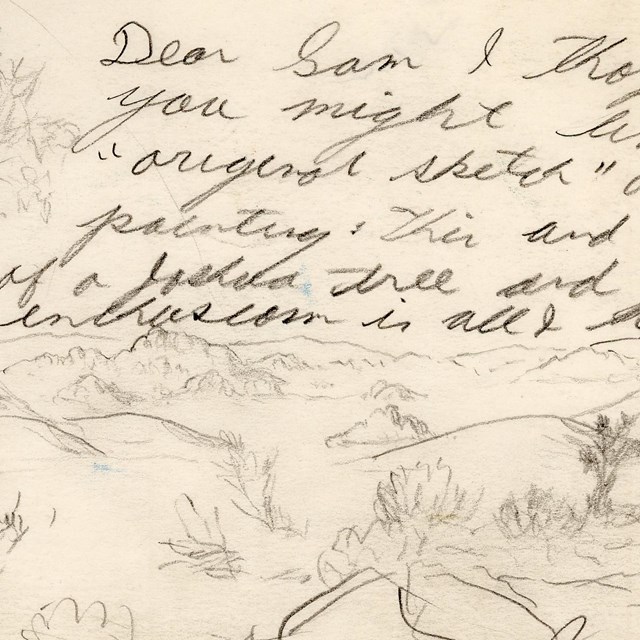 Dear Sam I tho
you might li
"original sketch"
painting. This and
of a Joshua tree and
enthusiasm is all I